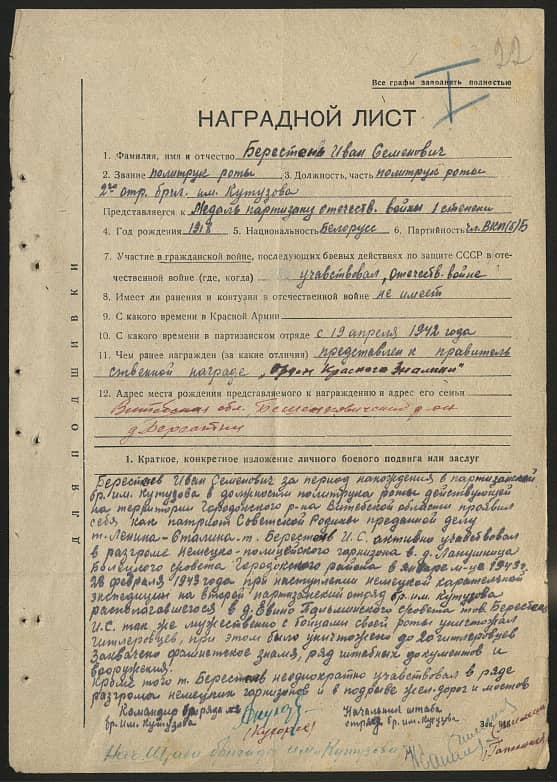 22
Все графы заполнять полностью
I
НАГРАДНОЙ ЛИСТ
1. Фамилия, имя и отчество Берестень Иван Семенович
2. Звание политрук роты 3. Должность, часть политрук роты
2го отр. бриг. им. Кутузова
Представляется к Медаль партизану отечеств. войны 1 степени
4. Год рождения 1918 5. Национальность Белорусс 6. Партийность чл. ВКП(б)Б
7. Участие в гражданской войне, последующих боевых действиях по защите СССР в оте-
чественной войне (где, когда) учавствовал „отечеств. войне
8. Имеет ли ранения и контузии в отечественной войне не имеет
9. С какого времени в Красной Армии
10. С какого времени в партизанском отряде с 19 апреля 1942 года
11. Чем ранее награжден (за какие отличия) представлен к правитель
ственной награде „Орден Красного Знамени"
12. Адрес места рождения представляемого к награждению и адрес его семьи
Витебская обл. Бешенковический р-он
д.
ДЛЯ ПОДШИВКИ
1. Краткое, конкретное изложение личного боевого подвига или заслуг
Берестнев Иван Семенович за период нахождения в партизанской
бр. им. Кутузова в должности политрука роты действующей
на территории Городокского р-на Витебской области проявил
себя как патриот Советской Родины преданной делу
т. Ленина-Сталина. т. Берестень И.С. активно учавствовал
в разгроме немецко-полицейского гарнизона в д.
сровета Городокского района в январе м-це 1943 г.
28 февраля 1943 года при наступлении немецкой карательной
экспедиции на второй партизанский отряд бр. им. Кутузова
распологавшегося в д. сровета тов. Берестень
И.С. так же мужественно с бойцами своей роты уничтожал
гитлеровцев, при этом было уничтожено до 20 гитлеровцев
Захвачено знамя, ряд штабных документов и
вооружения.
Кроме того т. Берестень неоднократно учавствовал в ряде
разгрома немецких гарнизонов и в подрыве жел. дорог и мостов
Командир
бр. им. Кутузова
Начальник штаба
бр. им. Кутузова
Нач. Штаба бригады им. Кутузова